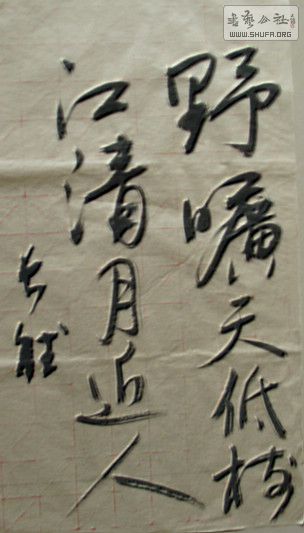 野曠天低树
江清月近人
书艺公社
WWW.SHUFA.ORG